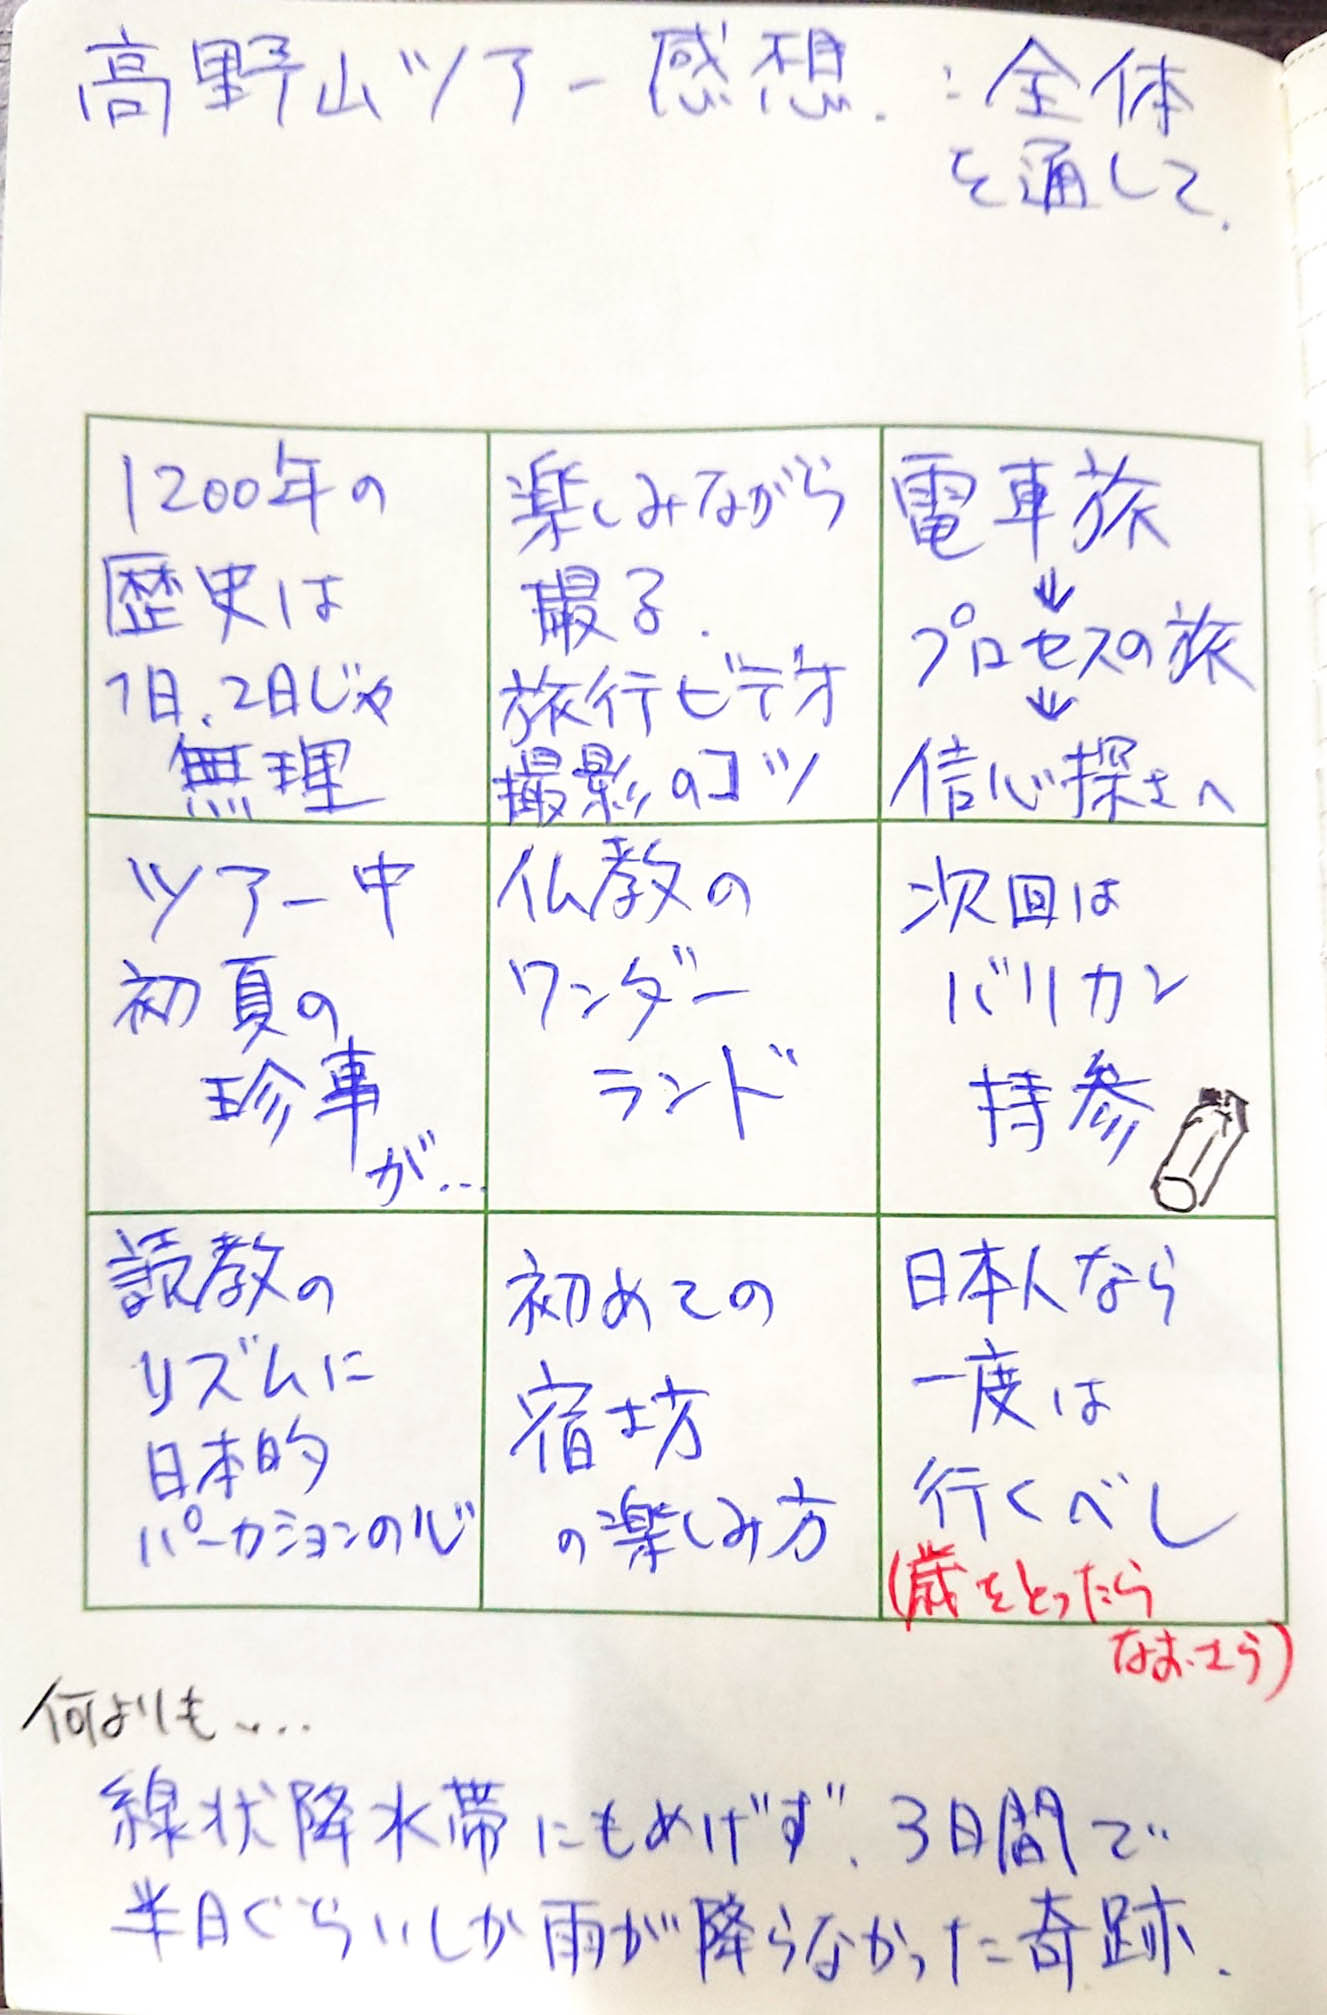 高野山ツアー感想.:全体
を通して.
1200年の
歴史は
1日、2日じゃ
無理
楽しみながら
撮る.
旅行ビデオ
撮影のコツ
電車旅
↓
プロセスの旅
↓
信心探さへ
ツアー中
初夏の
珍事
が...
仏教の
ワンダー
ランド
次回は
バリカン
持参
読教の
リズムに
日本的
パーカションの心
初めての
宿坊
の楽しみ方
日本人なら
一度は
行くべし
(歳をとったら
なおさら)
何よりも....
線状降水帯にもめげず、3日間で
半日ぐらいしか雨が降らなかった奇跡.